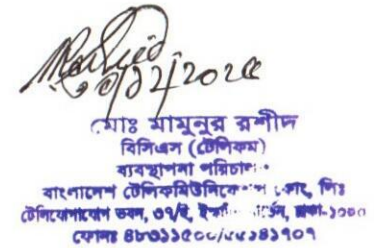 ৩০/১২/২০২৫
মোঃ মামুনুর রশীদ
বিসিএস (টেলিকম)
ব্যবস্থাপনা পরিচালক
বাংলাদেশ টেলিকমিউনিকেশন্স কোং, লিঃ
টেলিযোগাযোগ ভবন, ৩৭/ই, ইস্কাটন গার্ডেন, ঢাকা-১০০০
ফোনঃ ৪৮৩১১৫০০/৫৫১৪১৭০৭